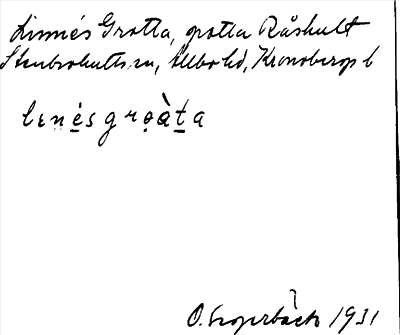 Linnés Grotta, grotta Råshult
Stenbrohults sn, Allbo hd, Kronobergs l
lɛnẹ́sgrọàṯa
O. 1931